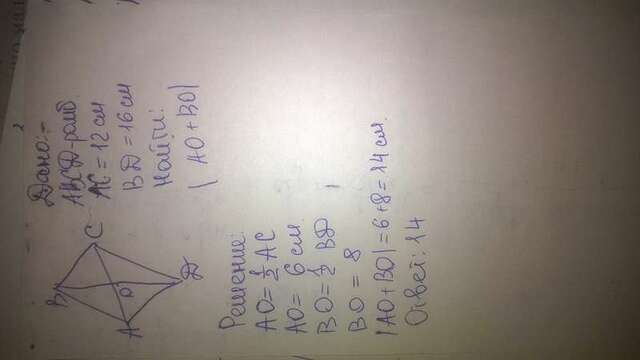 B
C
A
O
D
Дано:-
ABCD-ромб.
AC = 12 см
BD = 16 см
Найти:
| AO + BO |
Решение:
AO = 1/2 AC
AO = 6 см.
BO = 1/2 BD
BO = 8
|AO + BO| = 6 + 8 = 14 см.
Ответ: 14